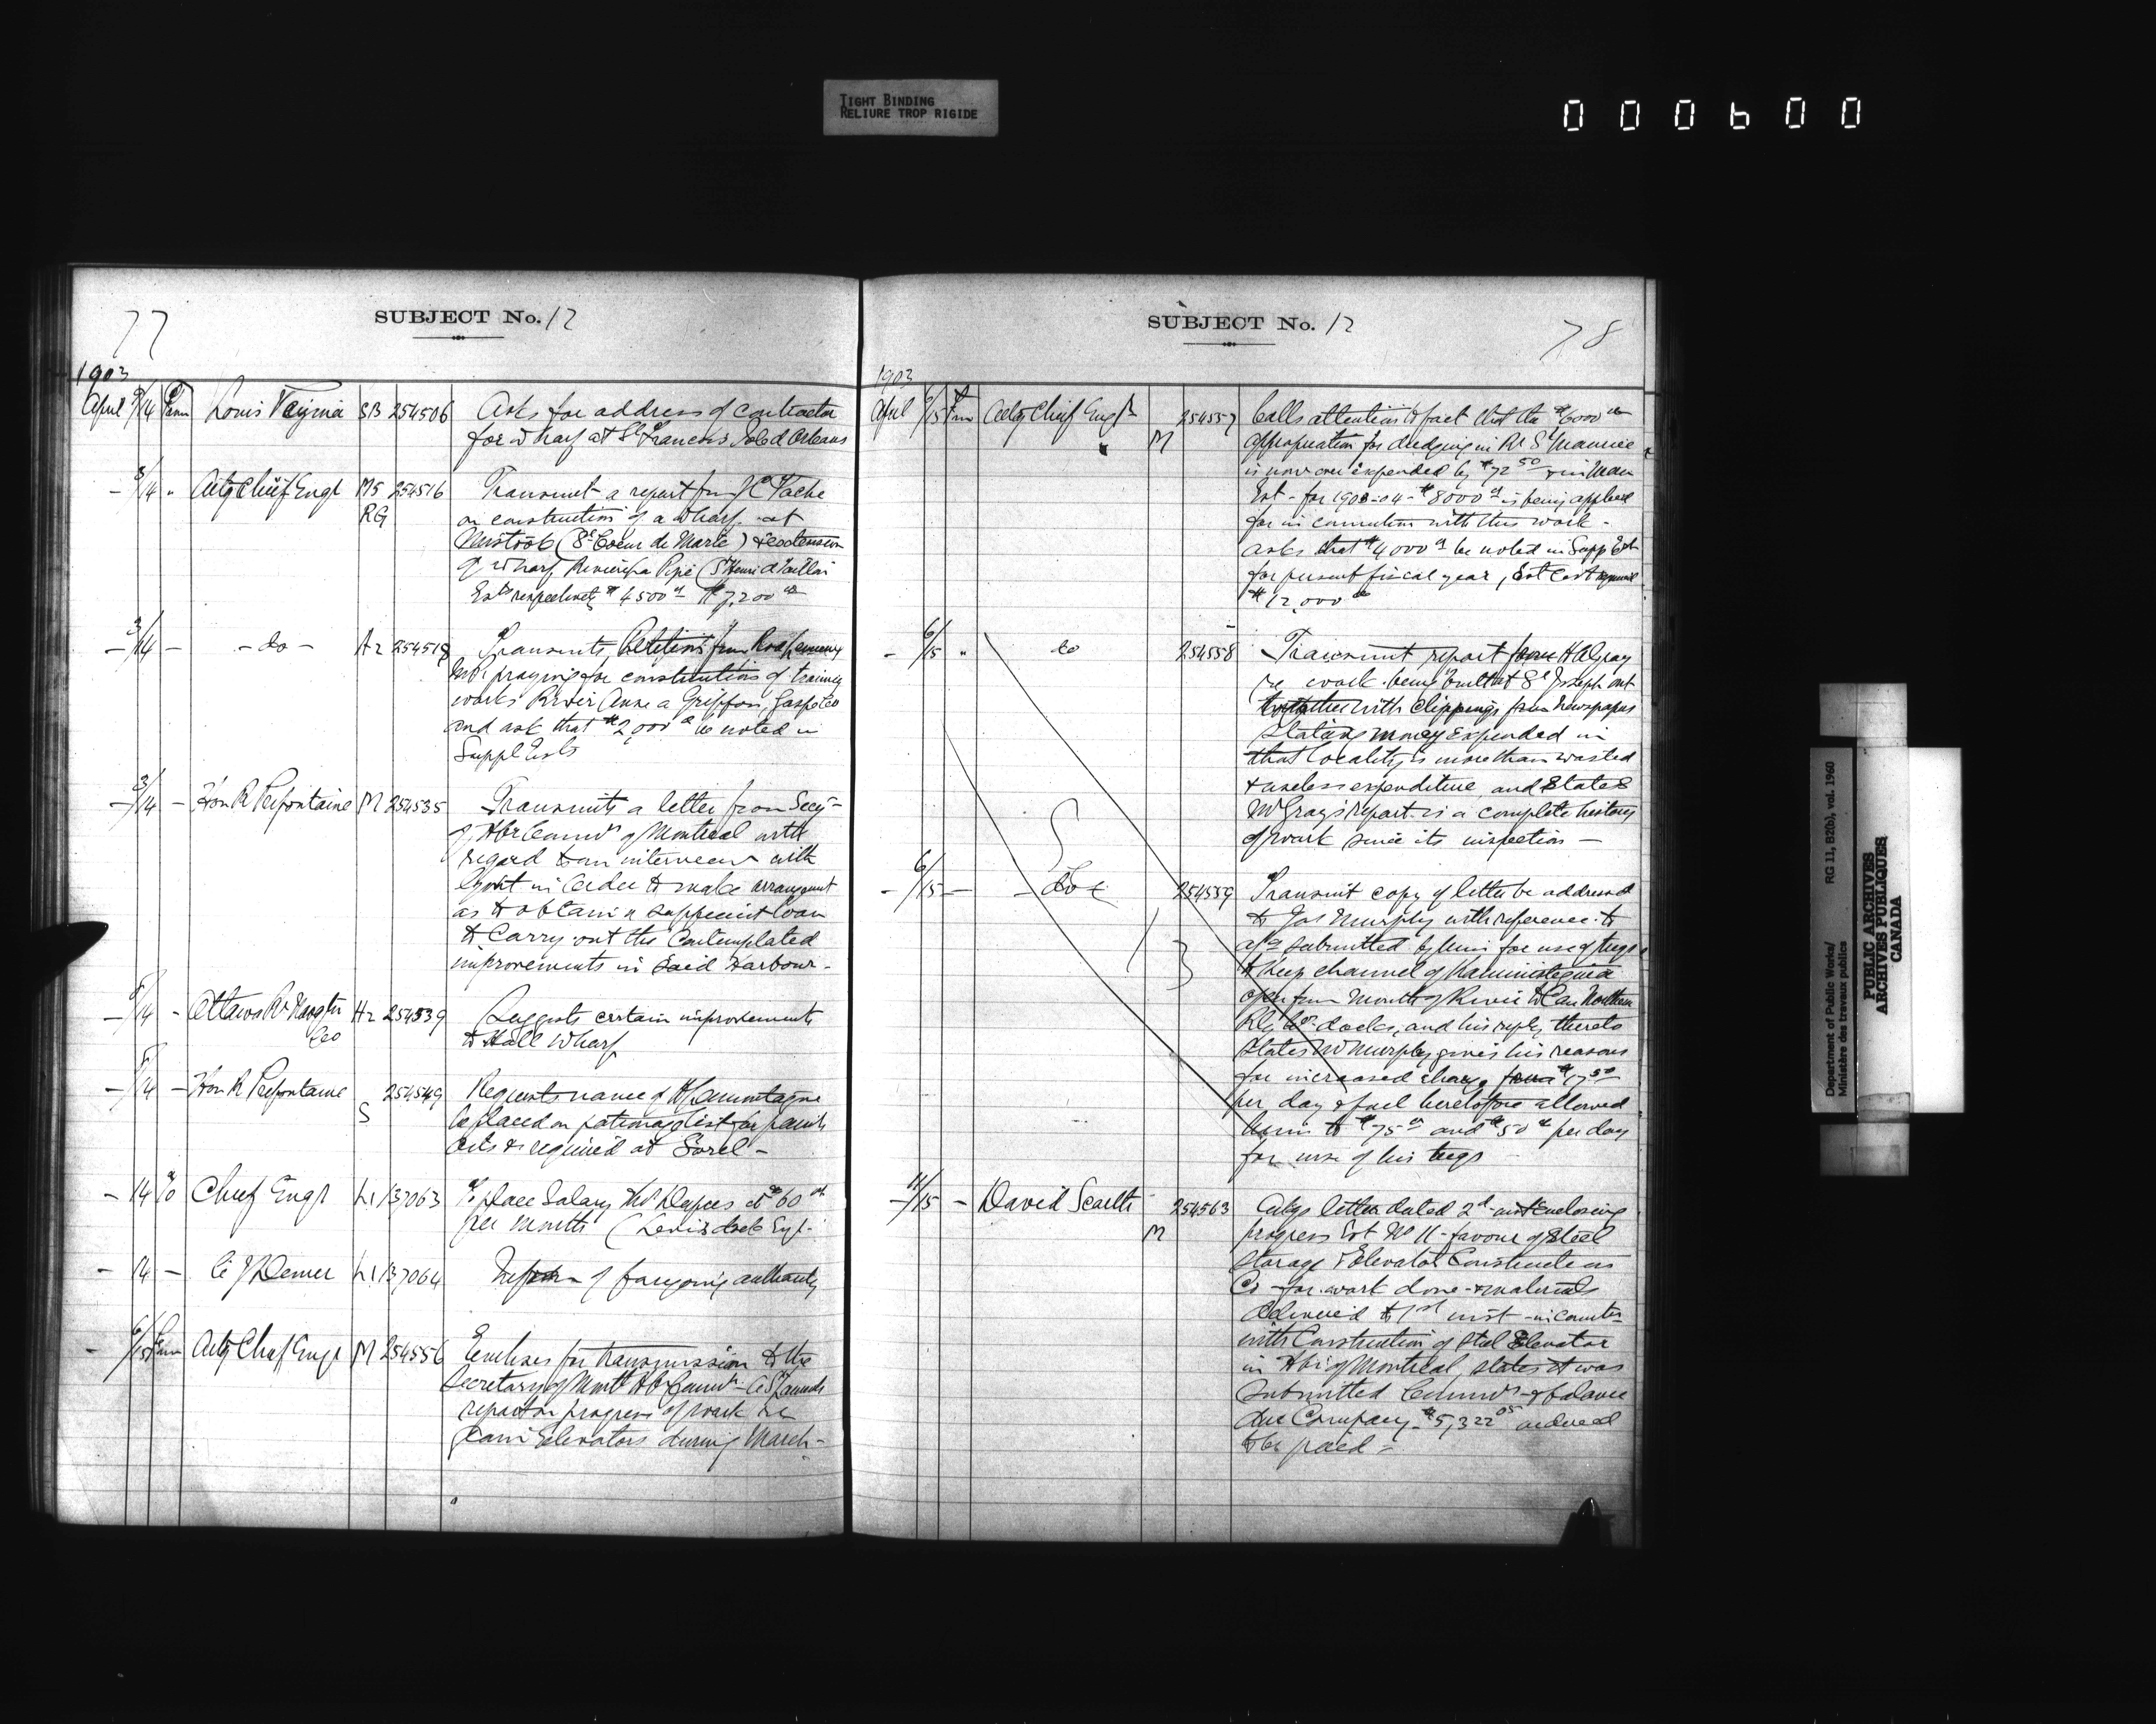 TIGHT BINDING
RELIURE TROP RIGIDE
000600
77
SUBJECT No. 12
1903
April 9/14 Louis SB 254506 Asks for address of contractor
for wharf at St Francois Isle d'Orleans
- 8/14 " Actg Chief Engr MS 254516 Transmit a report from J C Tache
RG on construction of a wharf at
Mistook (St Coeur de Marie) & extension
of wharf Riviere a Pipe (St Henri d Taillon
Ests respectively $4500 00 $7,200 00
- 3/14 - - do - A2 254518 Transmits Petitions from Rod Lemieux
MP praying for construction of training
works River Anse a Griffon, Gaspe Co
and ask that $2,000 00 be noted in
Suppl Ests
- 3/14 - Hon R Prefontaine M 254535 Transmits a letter from Secy -
of Hbr Comrs of Montreal with
regard to an interview with
Govt in order to make arrangement
as to obtain a sufficient loan
to carry out the contemplated
improvements in said Harbour -
- 8/14 - Ottawa Rr Navgtn H2 254539 Suggests certain improvements
Co to Hall wharf
- 8/14 - Hon R Prefontaine 254549 Requests name of
S be placed on patronage list for paints
oils & required at Sorel -
- 14 % Chief Engr L1 137063 To place Salary at $60 00
per month (Levis dock
- 14 - L1 137064 of foregoing authority
- 6/15 Actg Chief Engr M 254556 Encloses for transmission to the
Secretary of Montl Hbr Comrs
report on progress of work re
Grain Elevators during March -
SUBJECT No. 12
78
1903
April 6/15 Actg Chief Engr 254557 Calls attention to fact that the $6000 00
M appropriation for dredging in Rr St Maurice
is now over expended by $72 50 & in Main
Est - for 1903-04 - $8000 00 is being applied
for in connection with this work -
asks that $4000 00 be noted in Supp Est
for present fiscal year, Est Cost required
$12,000 00
- 6/15 " do 254558 Transmit report from H A Gray
re work being built at St Joseph ont
together with Clippings from Newspapers
stating money expended in
that locality is more than wasted
& useless expenditure, and states
Mr Gray's report is a complete history
of work since its inspection -
- 6/15 - - do 254559 Transmit copy of letter he addressed
to Jas Murphy with reference to
a/c submitted by him for use of tugs
to keep channel of Kaministiquia
open from Mouth of River to Can Northern
Rly Co's docks, and his reply thereto
states Mr Murphy gives his reasons
for increased charge from $17 50
per day & fuel heretofore allowed
him to $75 00 and $50 00 per day
for use of his tugs
- 11/15 - David Scarlett 254563 letter dated 2d inst enclosing
M progress Est No 11 - favour of Steel
Storage & Elevator Construction
Co - for work done & materials
delivered to 1st inst - in connctn
with Construction of Steel Elevator
in Hbr of Montreal, states it was
submitted Comrs & balance
due Company $5,322 05 ordered
to be paid -
Department of Public Works/
Ministère des travaux publics
RG 11, B2(b), vol. 1960
PUBLIC ARCHIVES
ARCHIVES PUBLIQUES
CANADA